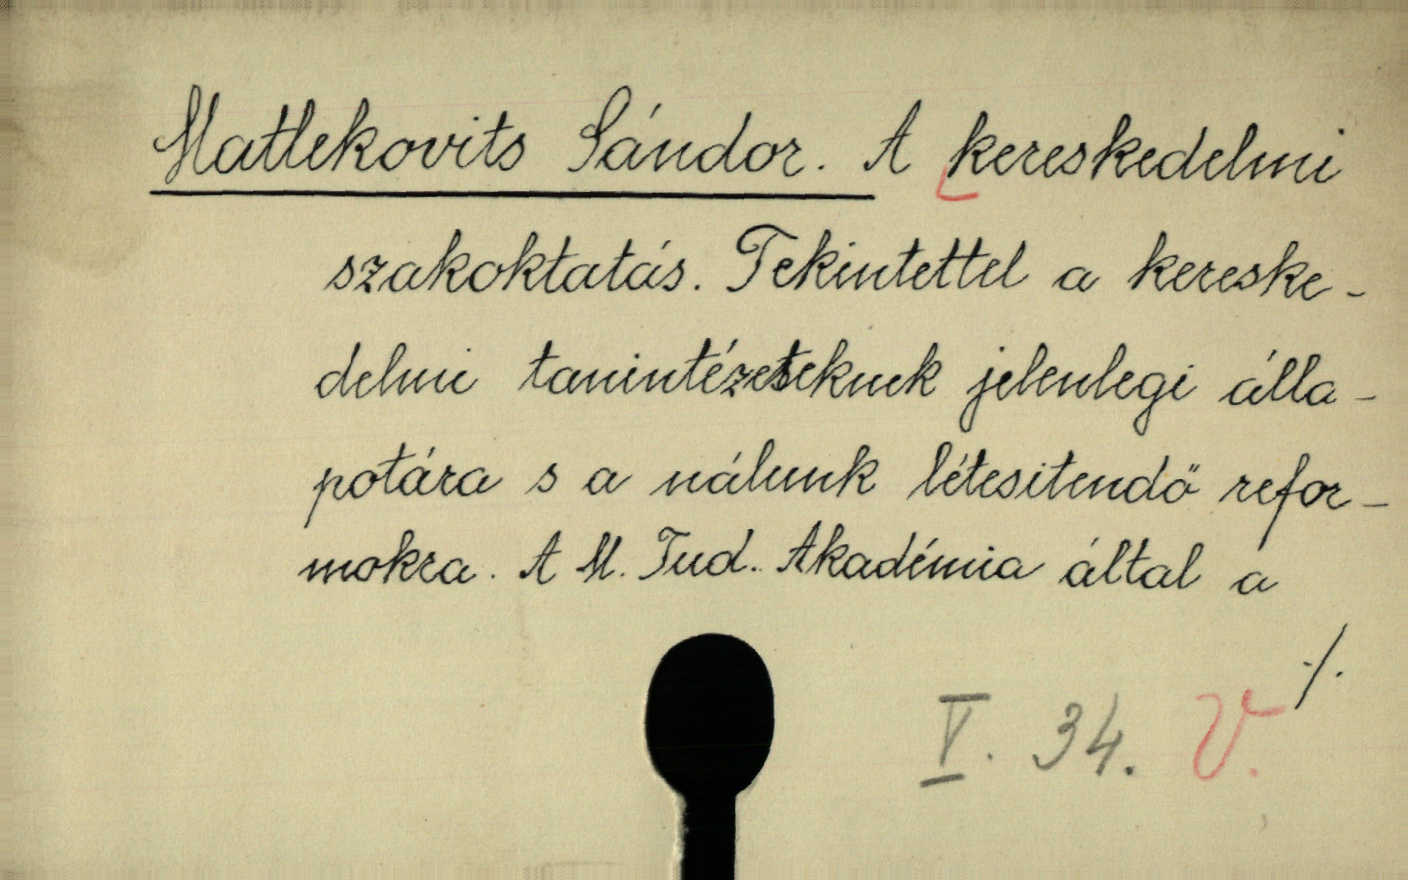 Matlekovits Sándor. A kereskedelmi
szakoktatás. Tekintettel a kereske-
delmi tanintézeteknek jelenlegi álla-
potára s a nálunk létesitendő refor-
mokra. A M. Tud. Akadémia által a
./.
V. 34. V.